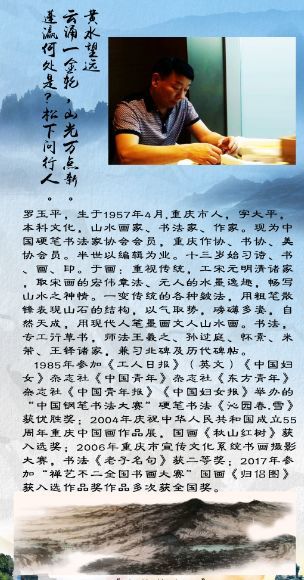 黄水望远
云涌一金，山光万点新。
蓬瀛何处是？松下问行人。
罗玉平，生于1957年4月,重庆市人，字太平，
本科文化，山水画家、书法家、作家。现为中
国硬笔书法家协会会员，重庆作协、书协、美
协会员。半世以编辑为业。十三岁始习诗、书
、画、印。于画：重视传统，工宋元明清诸家
，取宋画的宏伟章法、元人的水墨逸趣，畅写
山水之神情。一变传统的各种皴法，用粗笔散
锋表现山石的结构，以气取势，磅礴多姿，自
然天成，用现代人笔墨画文人山水画。书法，
专工行草书，师法王羲之、孙过庭、怀素、米
芾、王铎诸家，兼习北碑及历代碑帖。
1985年参加《工人日报》（英文）《中国妇
女》杂志社《中国青年》杂志社《东方青年》
杂志社《中国青年报》《中国妇女报》举办的
“中国钢笔书法大赛”硬笔书法《沁园春.雪》
获优胜奖；2004年庆祝中华人民共和国成立55
周年重庆中国画作品展，国画《秋山红树》获
入选奖；2006年重庆市宣传文化系统书画摄影
大赛，书法《老子名句》获二等奖；2017年参
加“禅艺不二全国书画大赛”国画《归侣图》
获入选作品奖作品多次获全国奖。